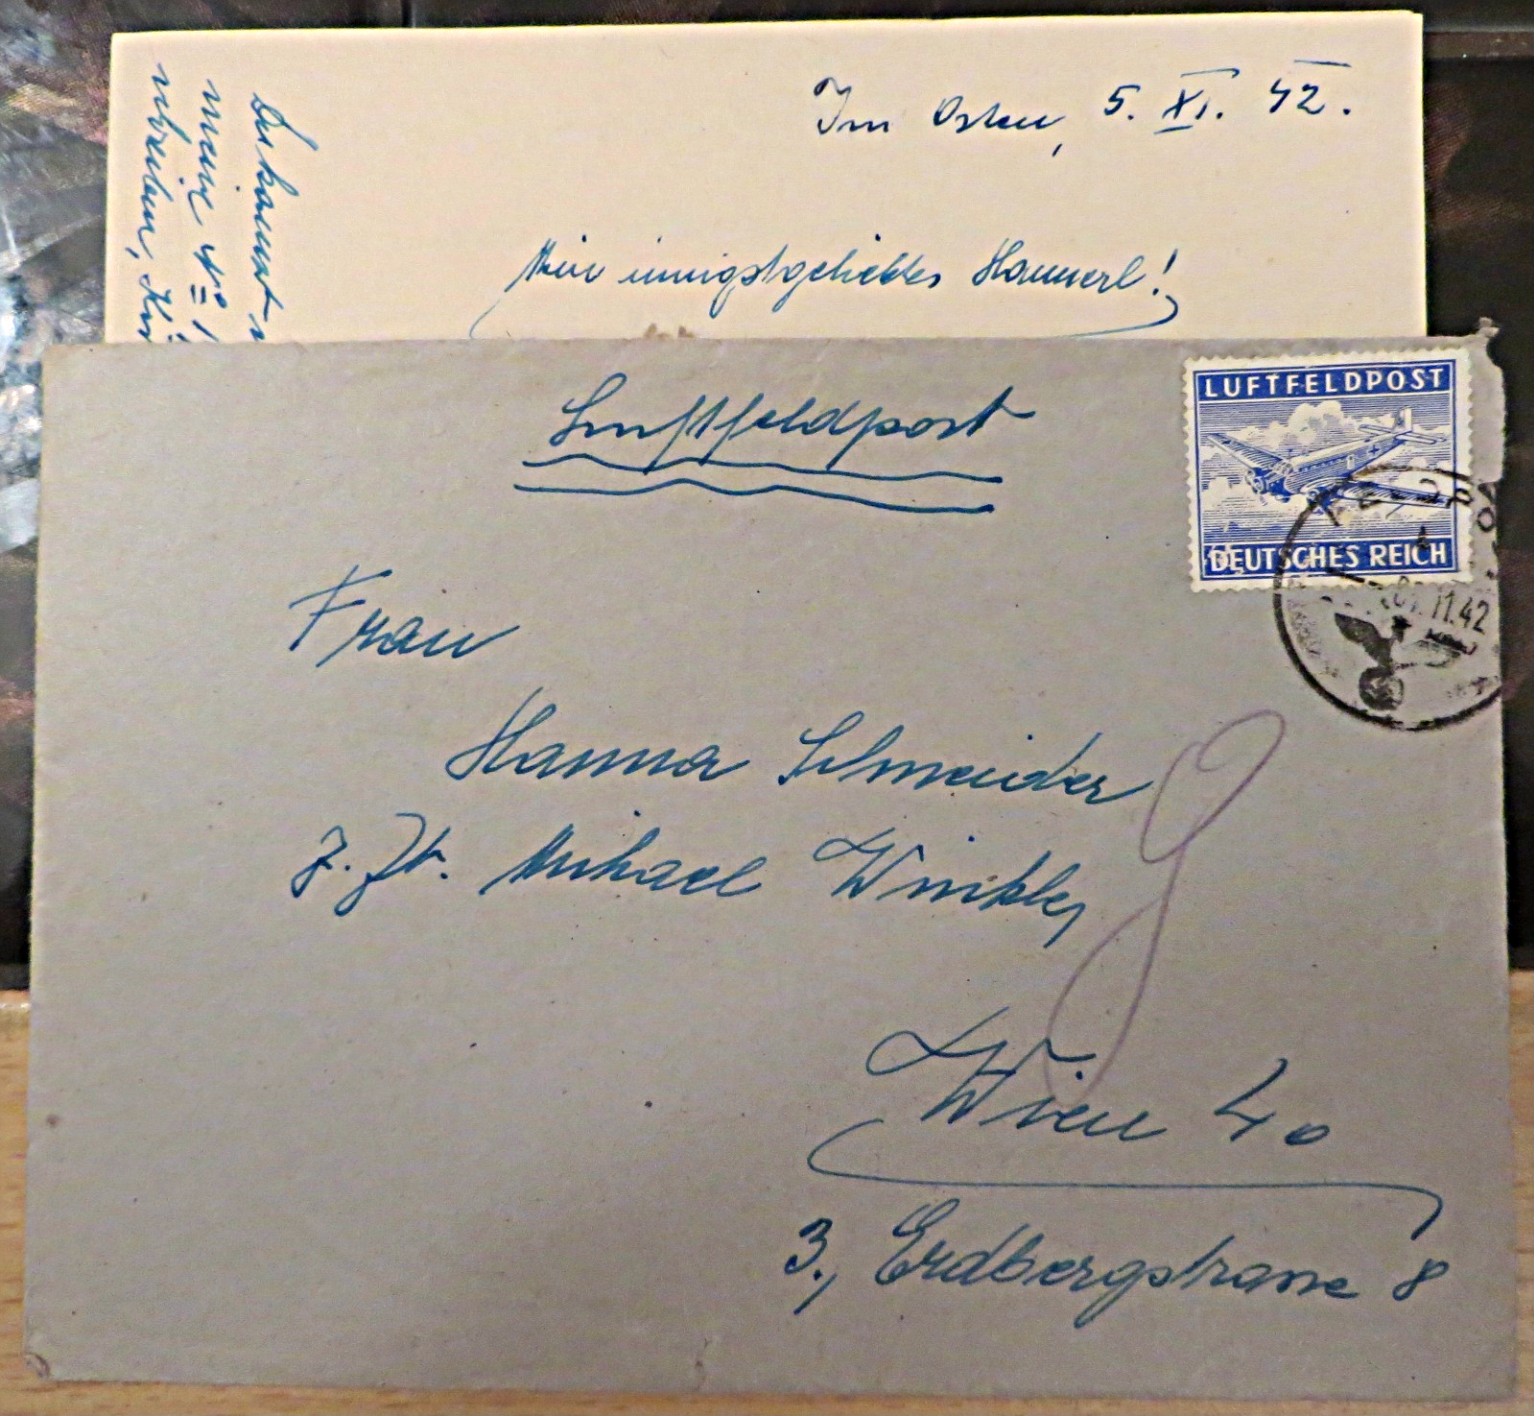 Im Osten, 5. XI. 42.
Mein innigstgeliebtes Hannerl!
Du kannst
meine No
schreiben,
Luftfeldpost
LUFTFELDPOST
DEUTSCHES REICH
11.42
Frau
Hanna Schneider
z. Zt. Michael Winkler
Wien 40
3., Erdbergstrasse 8